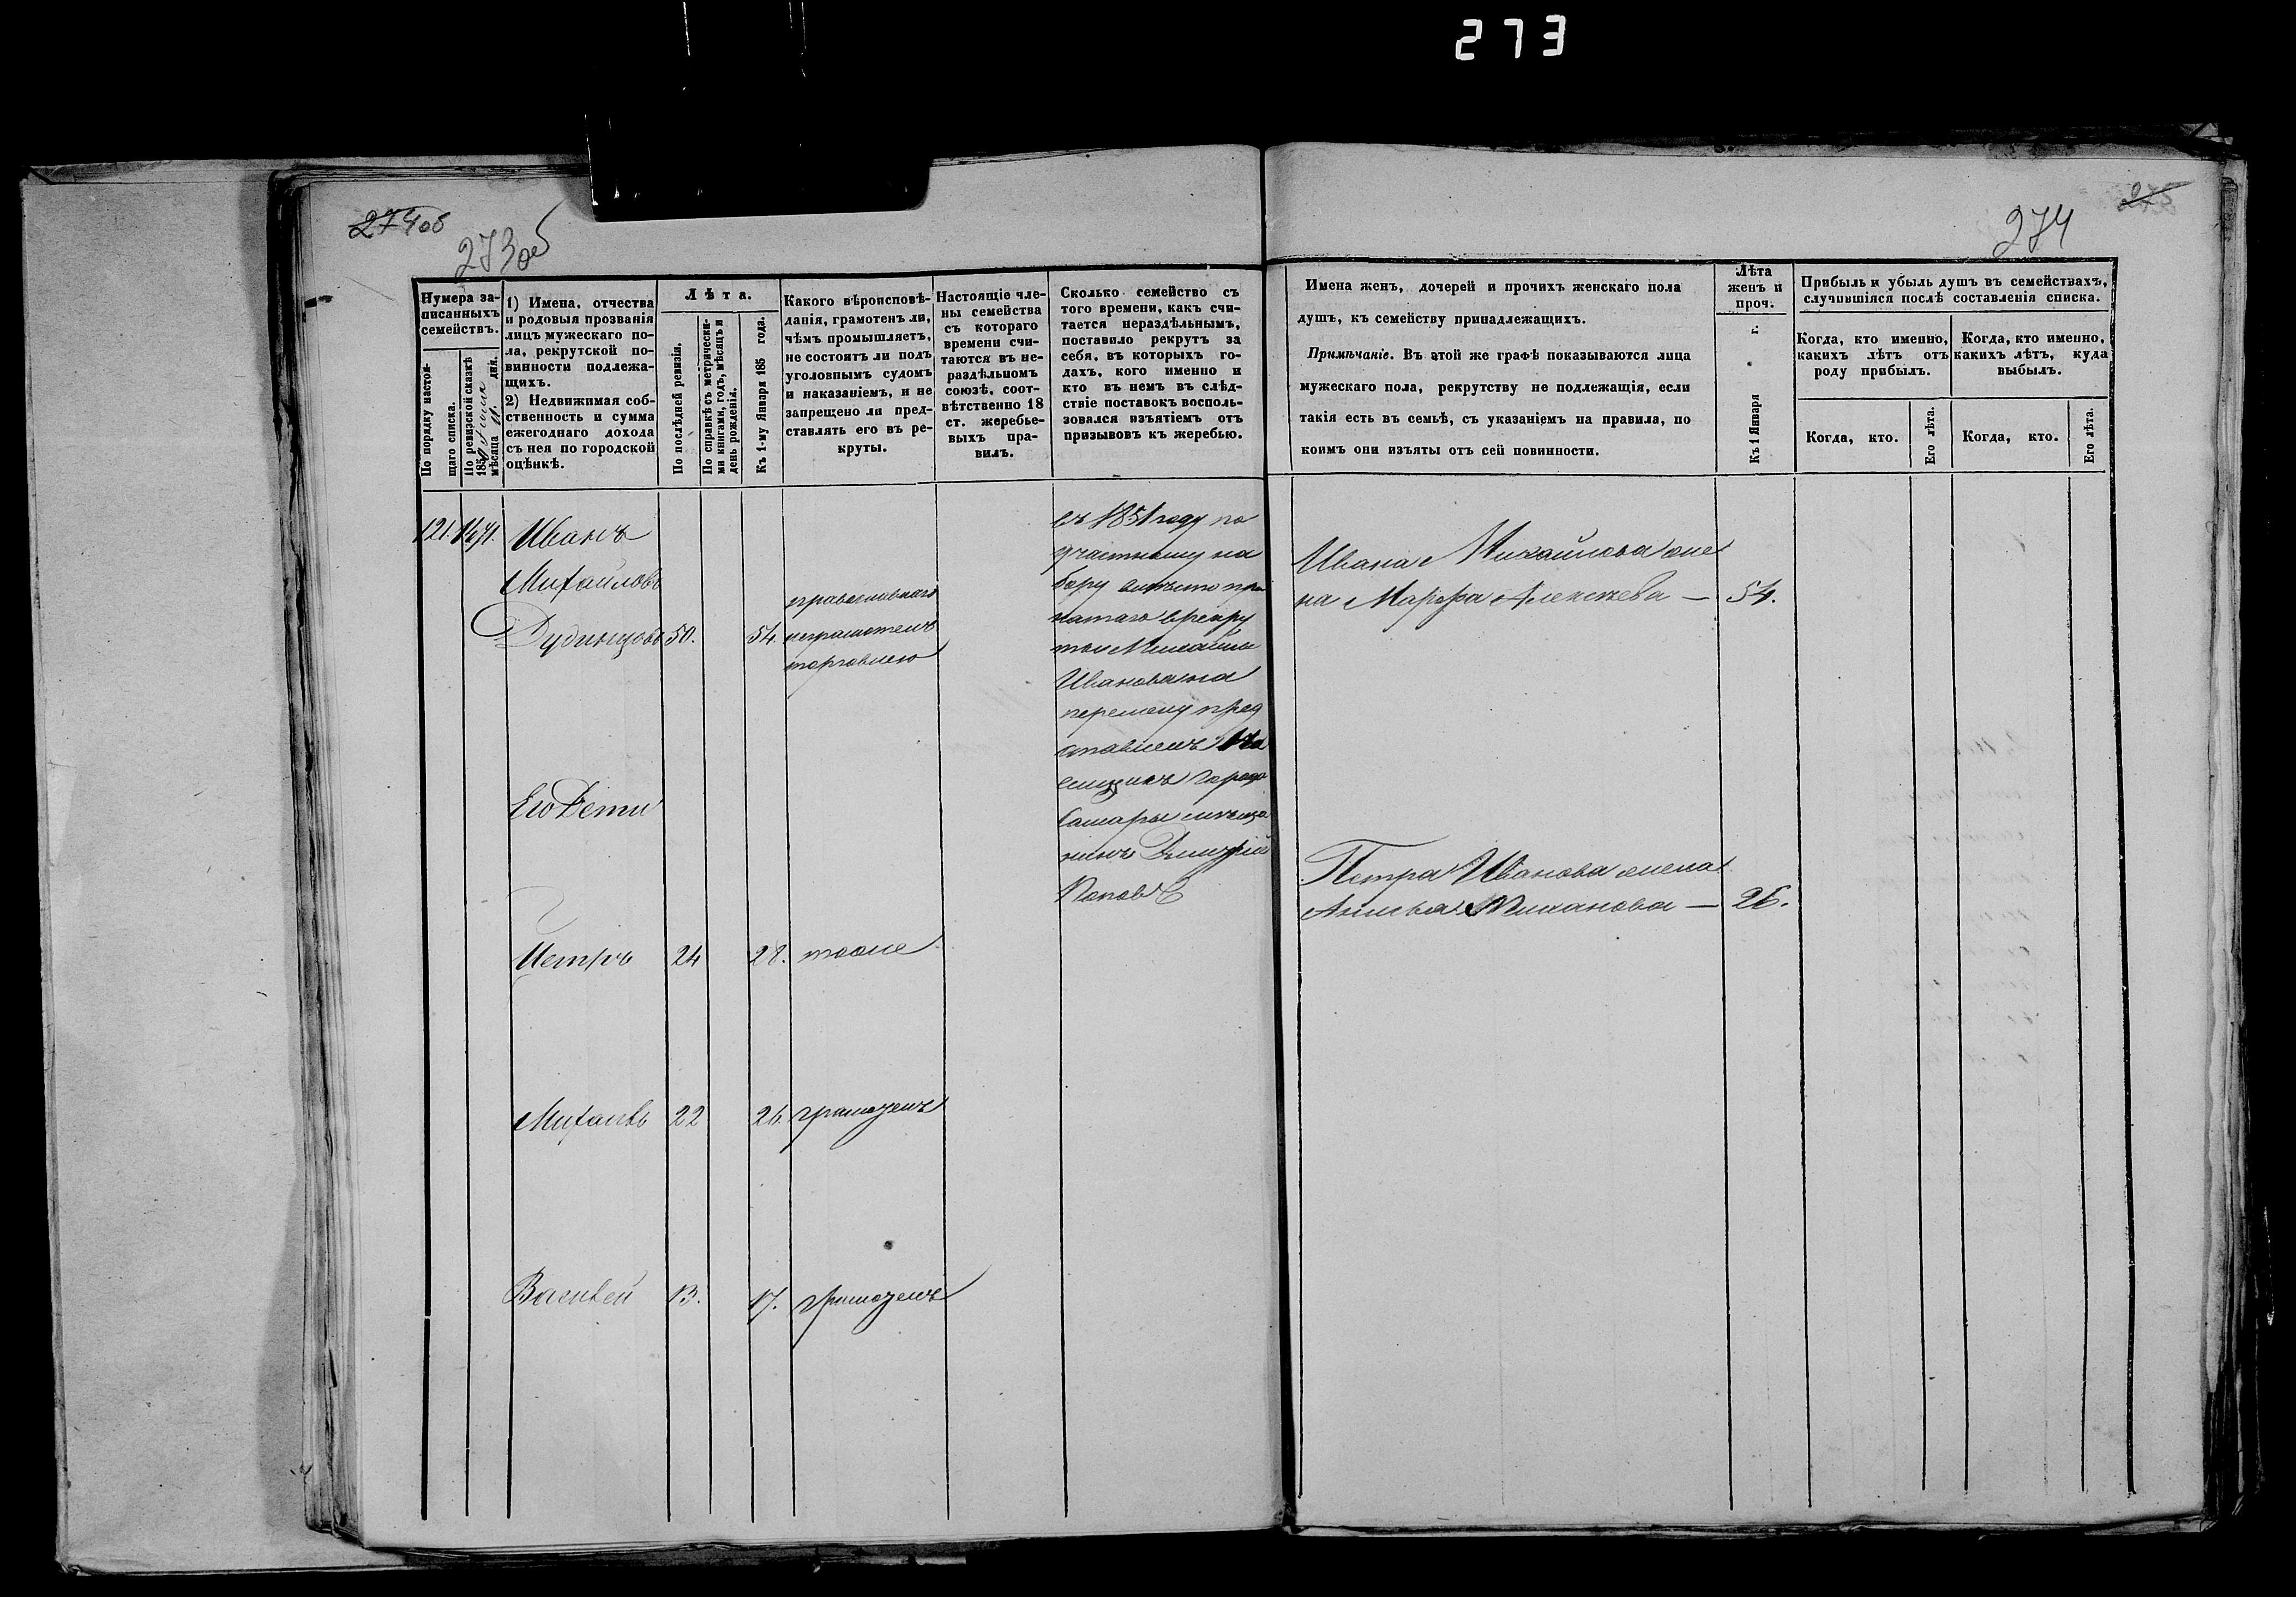 273
274 об
273 об
Нумера за-
писанныхъ
семействъ.
По порядку настоя-
щаго списка.
По ревизской сказкѣ
185
мѣсяца дня.
1) Имена, отчества
и родовыя прозванія
лицъ мужескаго по-
ла, рекрутской по-
винности подлежа-
щихъ.
2) Недвижимая соб-
ственность и сумма
ежегоднаго дохода
съ нея по городской
оцѣнкѣ.
Лѣта.
По послѣдней ревизіи.
По справкѣ съ метрически-
ми книгами, годъ, мѣсяцъ и
день рожденія.
Къ 1-му Января 185 года.
Какого вѣроисповѣ-
данія, грамотенъ ли,
чѣмъ промышляетъ,
не состоитъ ли подъ
уголовнымъ судомъ
и наказаніемъ, и не
запрещено ли пред-
ставлять его въ ре-
круты.
Настоящіе чле-
ны семейства
съ котораго
времени счи-
таются въ не-
раздѣльномъ
союзѣ, соот-
вѣтственно 18
ст. жеребье-
выхъ пра-
вилъ.
Сколько семейство съ
того времени, какъ счи-
тается нераздѣльнымъ,
поставило рекрутъ за
себя, въ которыхъ го-
дахъ, кого именно и
кто въ немъ въ слѣд-
ствіе поставокъ восполь-
зовался изъятіемъ отъ
призывовъ къ жеребью.
121. 1471.
Иванъ
Михайловъ
Дудинцовъ 50. 54.
православнаго
неграмотенъ
торговлею
въ 1851 году по
участному на
бору вмѣсто при
натаго в рекру
ты Михаила
Иванова на
перемену пред
ставленъ На
емщикъ города
Самары мѣща
нинъ Дмитрій
Поповъ
Его Дети
Петръ 24 28. тоже
Михаилъ 22 26. грамотенъ
Василей 13. 17. грамотенъ
275
274
Имена женъ, дочерей и прочихъ женскаго пола
душъ, къ семейству принадлежащихъ.
Примѣчаніе. Въ этой же графѣ показываются лица
мужескаго пола, рекрутству не подлежащія, если
такія есть въ семьѣ, съ указаніемъ на правила, по
коимъ они изъяты отъ сей повинности.
Лѣта
женъ и
проч.
Къ 1 Января г.
Прибыль и убыль душъ въ семействахъ,
случившіяся послѣ составленія списка.
Когда, кто именно,
какихъ лѣтъ отъ
роду прибылъ.
Когда, кто именно,
какихъ лѣтъ, куда
выбылъ.
Когда, кто.
Его лѣта.
Когда, кто.
Его лѣта.
Ивана Михайлова же
на Марфа Алексеева — 54.
Петра Иванова жена
Степанова — 26.